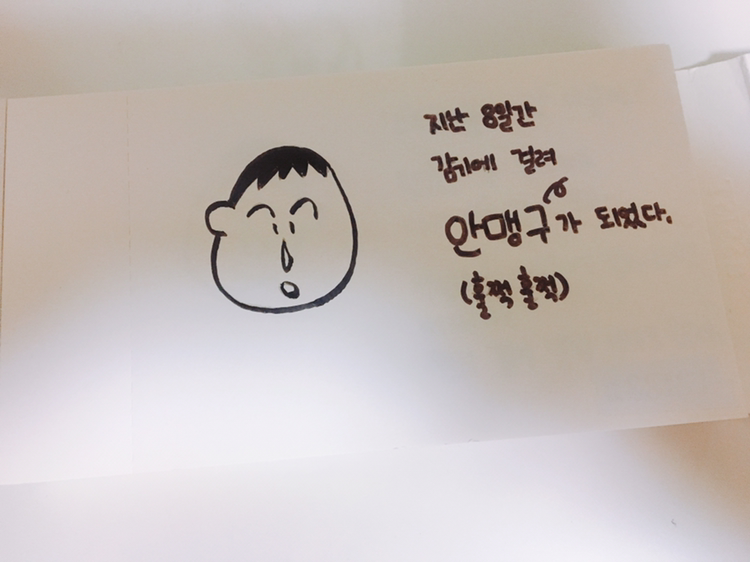 지난 8일간
감기에 걸려
안맹구가 되었다.
(훌쩍 훌쩍)